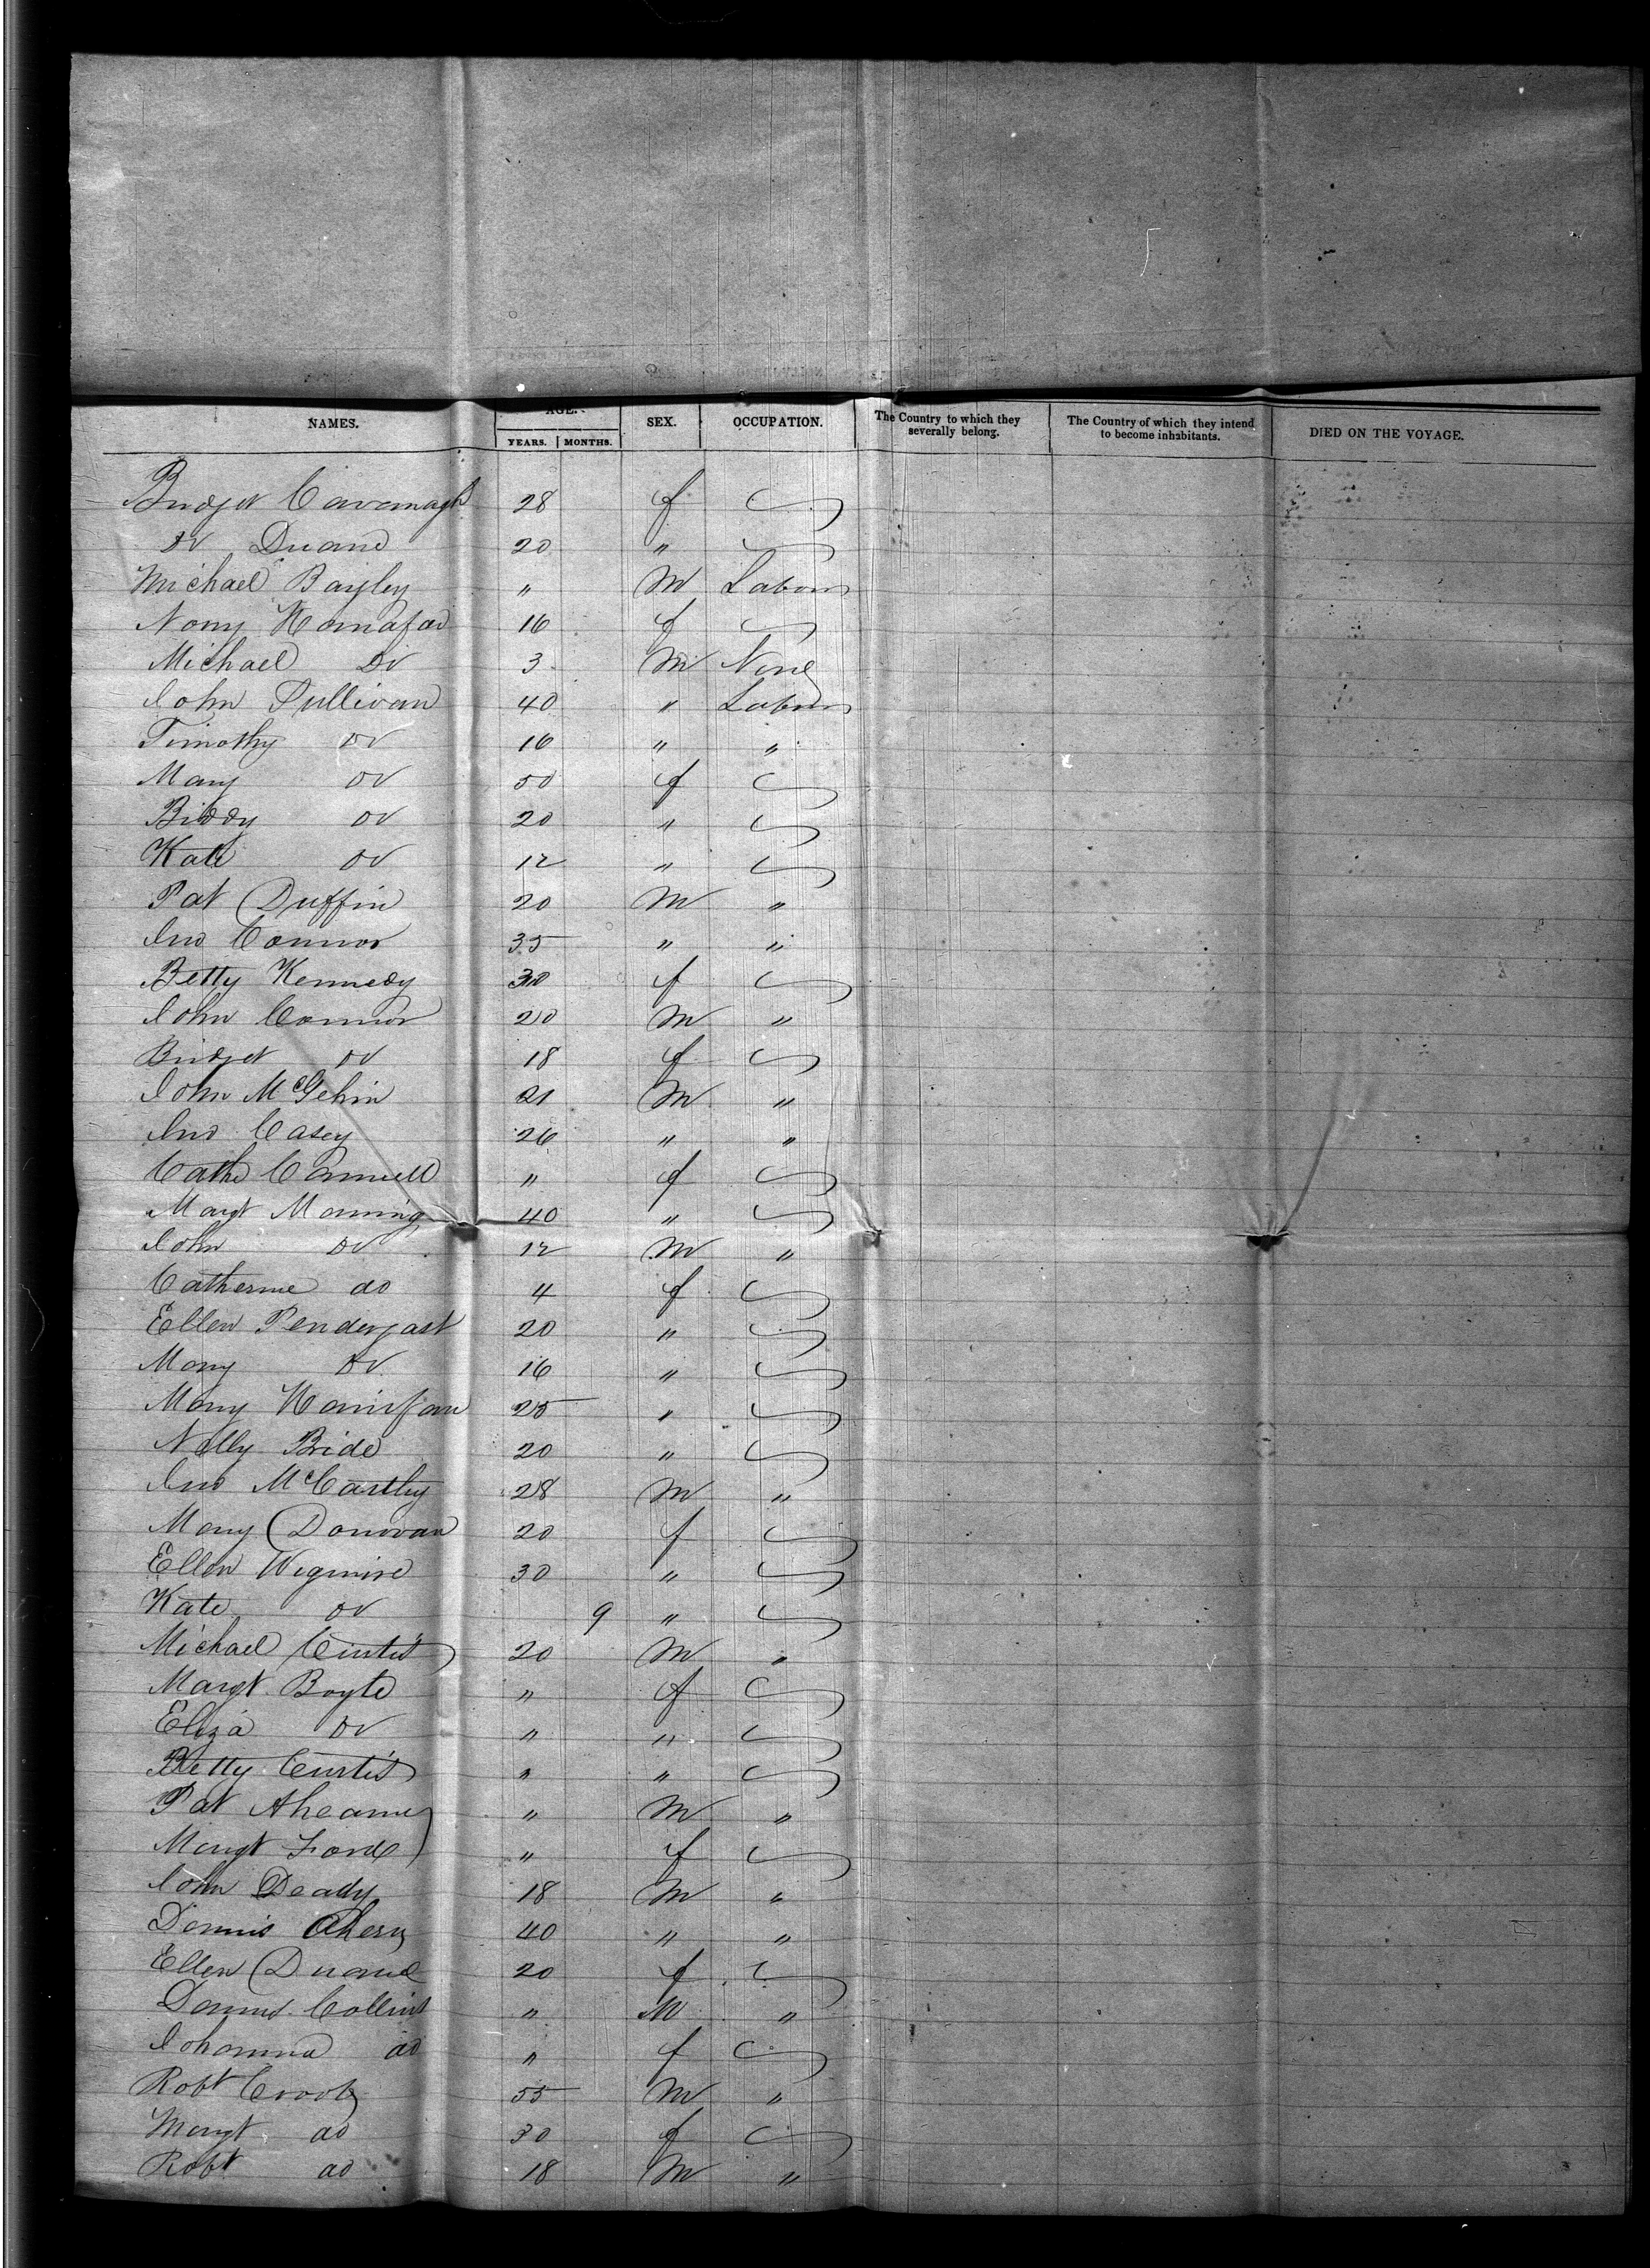 NAMES. AGE. SEX. OCCUPATION. The Country to which they severally belong. The Country of which they intend to become inhabitants. DIED ON THE VOYAGE.
YEARS. MONTHS.
Bridget Cavanagh 28 f
Do Duane 20 "
Michael Bayley " M Labour
16 f
Michael Do 3 M None
John Sullivan 40 " Labour
Timothy Do 16 " "
Mary Do 50 f
Biddy Do 20 "
Kate Do 12 "
Pat Duffin 20 M "
Jno Connor 35 " "
Betty Kennedy 30 f
John Connor 20 M "
Bridget Do 18 f
John McGehin 21 M "
Jno Casey 26 " "
Cathe Connell " f
Margt Manning 40 "
John Do 12 M "
Catherine do 4 f
Ellen Pendergast 20 "
Mary Do 16 "
Mary 25 "
Nelly Bride 20 "
Jno McCarthy 28 M "
Mary Donovan 20 f
Ellen 30 "
Kate Do 9 "
Michael Curtis 20 M "
Margt Boyle " f
Eliza Do " "
Betty Curtis " "
Pat Ahearne " M "
Margt Forde " f
John Deady 18 M "
Dennis Ahern 40 " "
Ellen Duane 20 f
Dennis Collins " M "
Johanna do " f
Robt 55 M "
Margt do 30 f
Robt do 18 M "